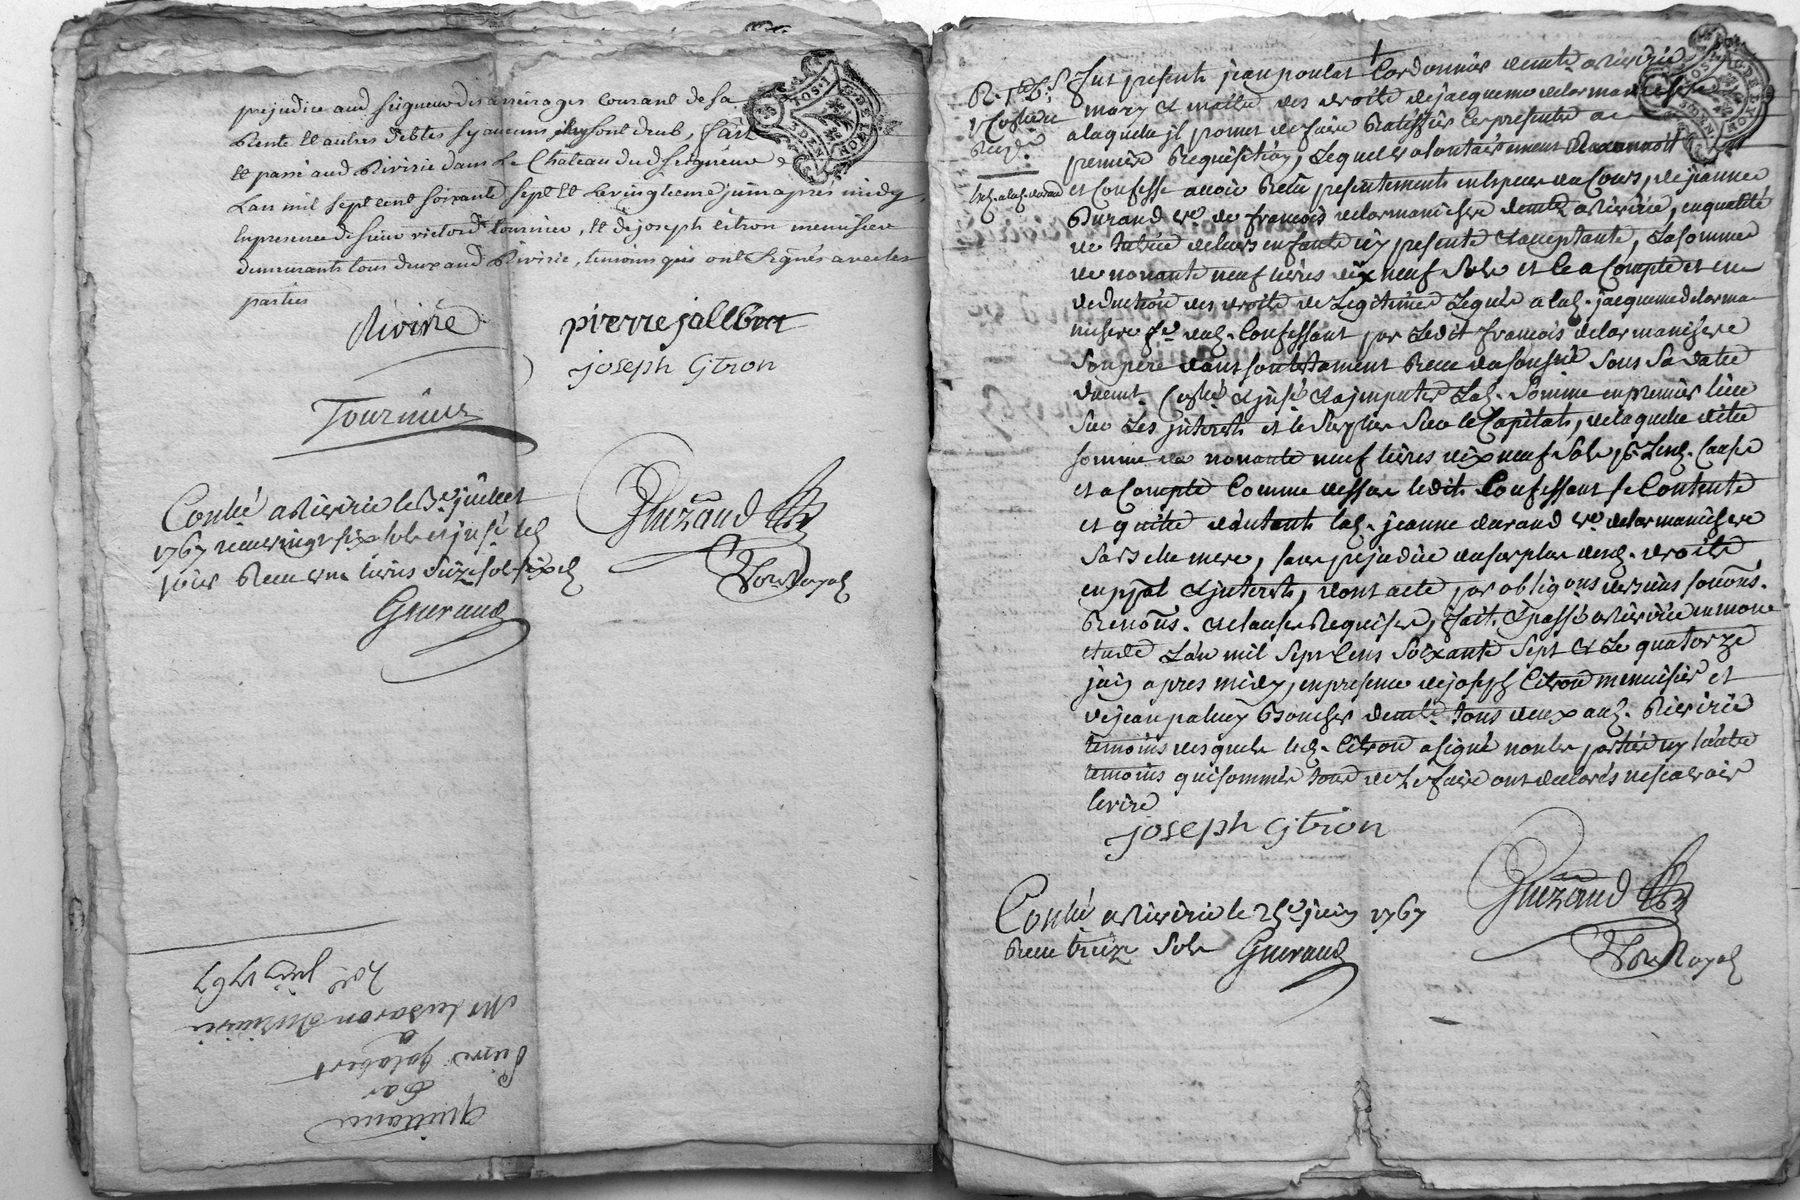 prejudice aud seigneur des arrerages courant de sa
Rente et autres debtes sy aucuns luy sont deub, fait
et passé aud Rivirie dans Le Chateau dud seigneur
Lan mil sept cent soixante sept et le vingtieme juin apres midy
en presence de sieur victor tournier, et de joseph citron menuisier
demeurants tous deux aud Rivirie, temoins qui ont signés avec les
parties
Rivirie
pierre jallbert
joseph Citron
Tournier
Conllé a Rivirie le 3e juillet
1767 receu vingt six sols et jusé led
jour Receu une livres saize sol six d
Gueraud
Gueraud
Nore Royal
quittance
Par
Pierre galabert
a
Mr le baron de Riviri
20e juin 1767
fut present jean poulat Cordonnier demt a Rivirie
mary et maitre des droits de jacqueme delormanisere
a laquelle jl promet de faire Ratiffier les presente a
premiere Requisition, Lequel volontairement Reconnoit
et Confesse avoir Receu presentement en espece du Cours, de jeanne
Durand ve de francois delormanisere demte a Rivirie, en qualité
de tutrice de leurs enfants icy presente et acceptante, La somme
de nonante neuf livres dix neuf sols et ce a Compte et en
deduction des droits de Legitime Legués a lad. jacqueme delorma
nisere fe dud. Confessant par Ledit francois delormanisere
son pere dans son testament Receu du soussigné sous sa datte
duemt. Conllé et jusé et a jmputer Lad. somme en premier lieu
sur Les jnterests et le surplus sur le Capital, de laquelle ditte
somme de nonante neuf livres dix neuf sols pr Lesd. Cause
et a Compte Comme dessus ledit Confessant se Contente
et quitte d'autant lad. jeanne durand ve delormanisere
sa belle mere, sans prejudice du surplus desd. droits
en ppal et jnterests, dont acte par obligons
Renons. et clauses Requises, fait et passé a Rivirie en mon
etude L'an mil sept Cens soixante sept et Le quatorze
juin apres midy, en presence de joseph Citron menuisier et
de jean palluy Boucher demts tous deux aud. Rivirie
temoins desquels led. Citron a signé non les parties ny l'autre
temoins qui sommés tous de Le faire ont declarés ne scavoir
ecrire
joseph Citron
Gueraud
Nore Royal
Conllé a Rivirie le 25e juin 1767
Receu treize sols Gueraud